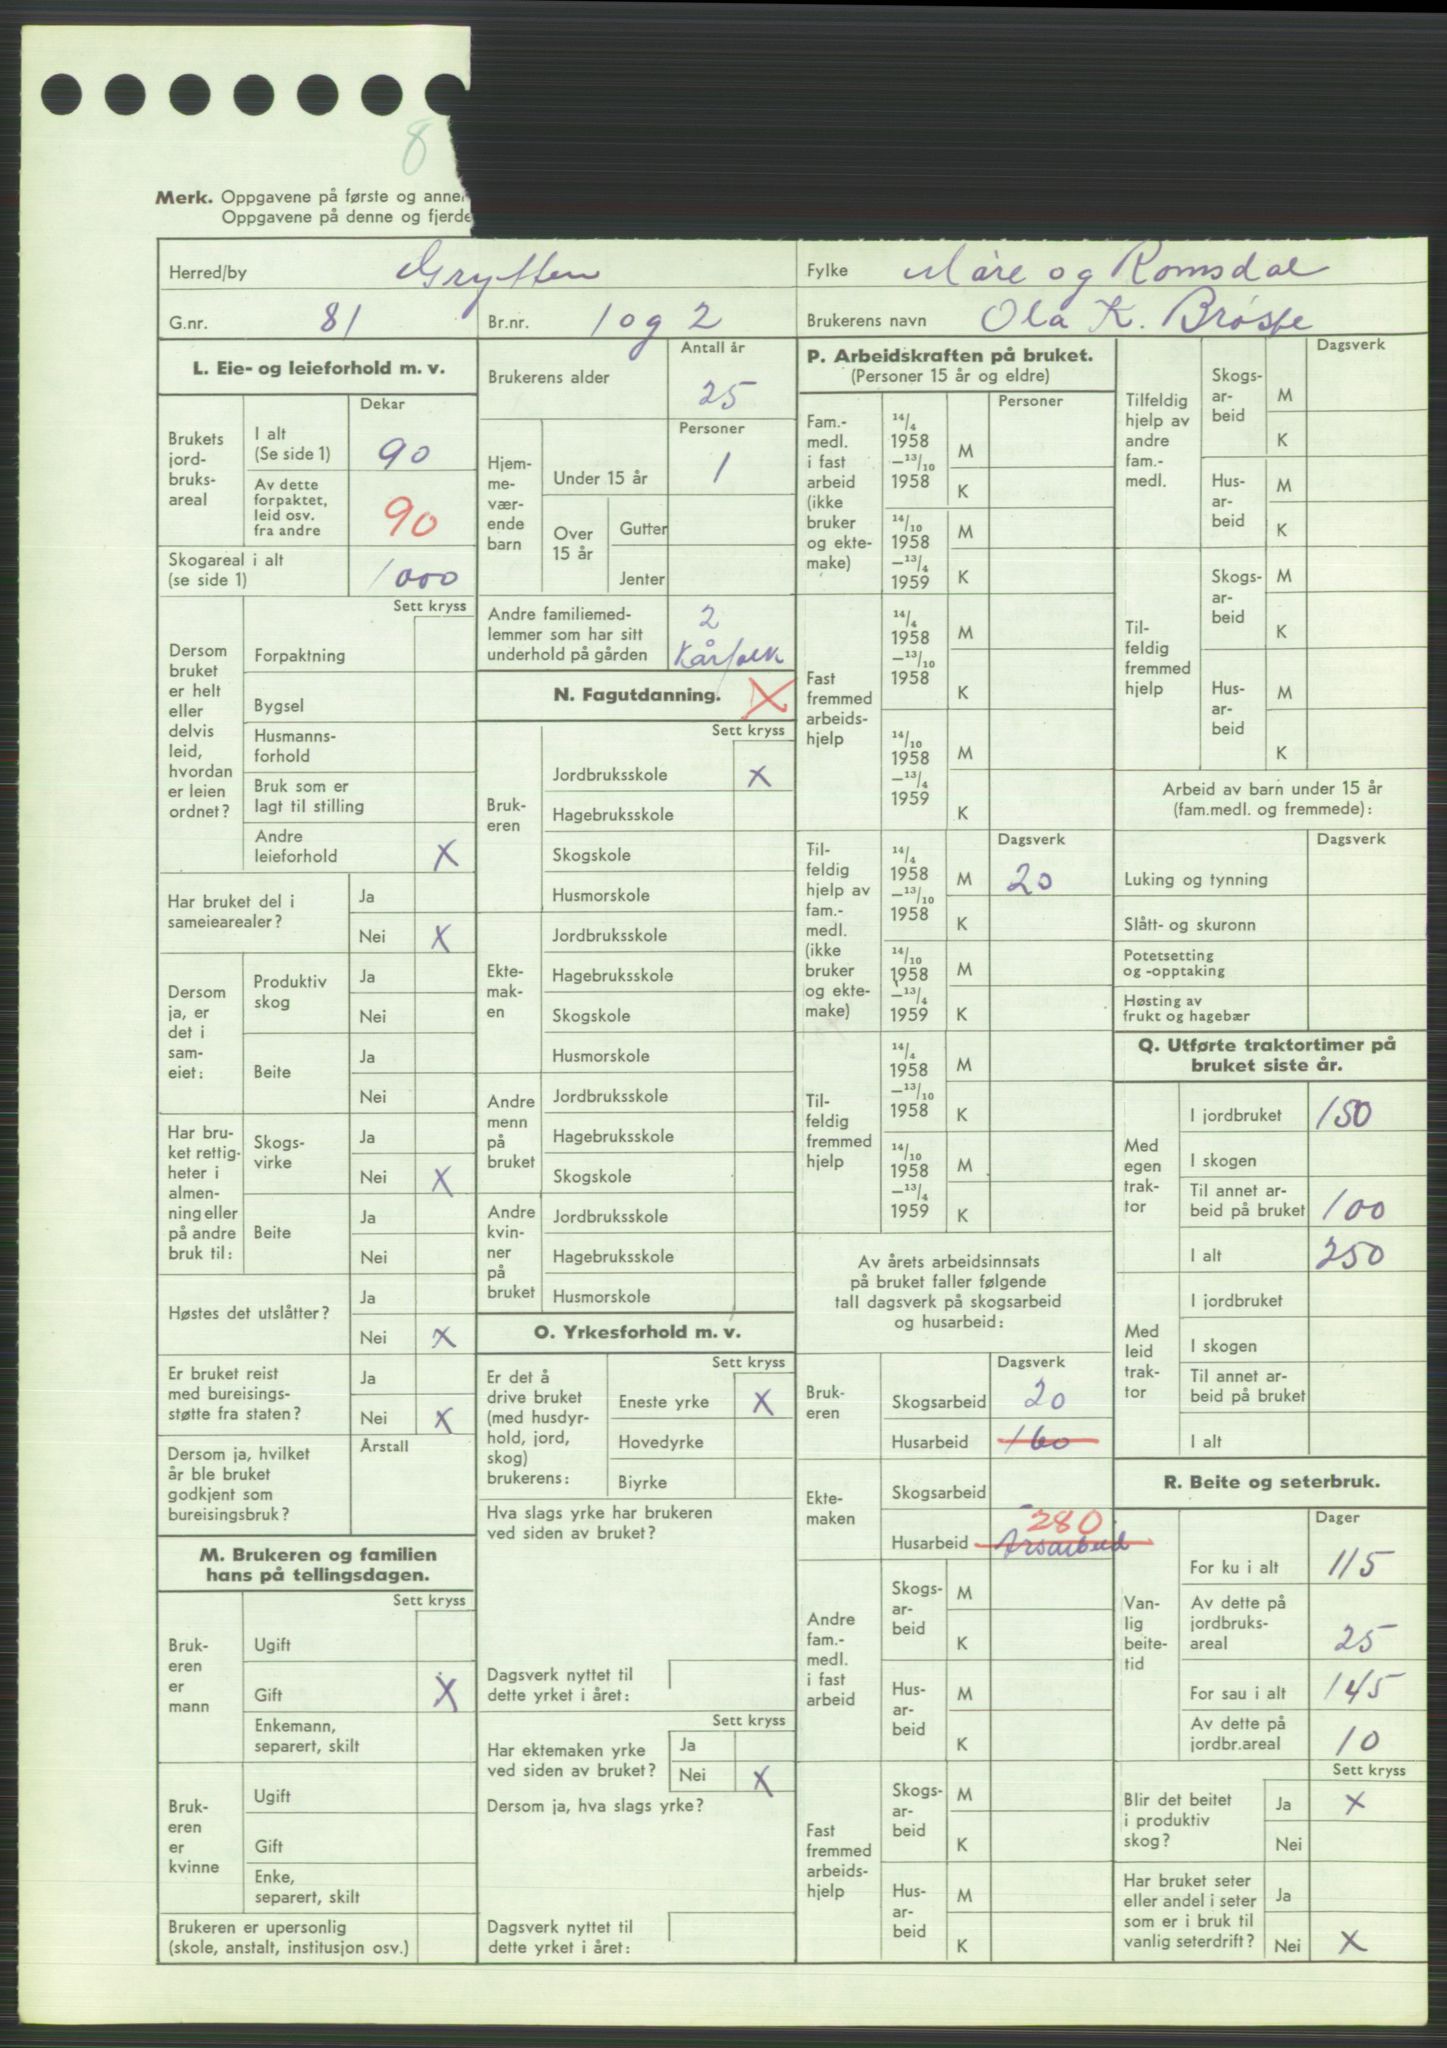 8
Merk. Oppgavene på første og anne
Oppgavene på denne og fjerde
Herred/by Grytten
Fylke Møre og Romsdal
G.nr. 81
Br.nr. 1 og 2
Brukerens navn Ola K. Brøste
L. Eie- og leieforhold m. v.
Dekar
Brukets jord-bruks-areal
I alt (Se side 1) 90
Av dette forpaktet, leid osv. fra andre 90
Skogareal i alt (se side 1) 1000
Sett kryss
Dersom bruket er helt eller delvis leid, hvordan er leien ordnet?
Forpaktning
Bygsel
Husmanns-forhold
Bruk som er lagt til stilling
Andre leieforhold X
Har bruket del i sameiearealer?
Ja
Nei X
Dersom ja, er det i sam-eiet:
Produktiv skog
Ja
Nei
Beite
Ja
Nei
Har bru-ket rettig-heter i almen-ning eller på andre bruk til:
Skogs-virke
Ja
Nei X
Beite
Ja
Nei
Høstes det utslåtter?
Ja
Nei X
Er bruket reist med bureisings-støtte fra staten?
Ja
Nei X
Dersom ja, hvilket år ble bruket godkjent som bureisingsbruk?
Årstall
M. Brukeren og familien hans på tellingsdagen.
Sett kryss
Bruk-eren er mann
Ugift
Gift X
Enkemann, separert, skilt
Bruk-eren er kvinne
Ugift
Gift
Enke, separert, skilt
Brukeren er upersonlig (skole, anstalt, institusjon osv.)
Antall år
Brukerens alder 25
Personer
Hjem-me-vær-ende barn
Under 15 år 1
Over 15 år
Gutter
Jenter
Andre familiemed-lemmer som har sitt underhold på gården 2 Kårfolk
N. Fagutdanning. X
Sett kryss
Bruk-eren
Jordbruksskole X
Hagebruksskole
Skogskole
Husmorskole
Ekte-mak-en
Jordbruksskole
Hagebruksskole
Skogskole
Husmorskole
Andre menn på bruket
Jordbruksskole
Hagebruksskole
Skogskole
Andre kvin-ner på bruket
Jordbruksskole
Hagebruksskole
Husmorskole
O. Yrkesforhold m. v.
Sett kryss
Er det å drive bruket (med husdyr-hold, jord, skog) brukerens:
Eneste yrke X
Hovedyrke
Biyrke
Hva slags yrke har brukeren ved siden av bruket?
Dagsverk nyttet til dette yrket i året:
Sett kryss
Har ektemaken yrke ved siden av bruket?
Ja
Nei X
Dersom ja, hva slags yrke?
Dagsverk nyttet til dette yrket i året:
P. Arbeidskraften på bruket.
(Personer 15 år og eldre)
Personer
Fam.-medl. i fast arbeid (ikke bruker og ekte-make)
14/4 1958 —13/10 1958
M
K
14/10 1958 —13/4 1959
M
K
Fast fremmed arbeids-hjelp
14/4 1958 —13/10 1958
M
K
14/10 1958 —13/4 1959
M
K
Dagsverk
Til-feldig hjelp av fam.-medl. (ikke bruker og ekte-make)
14/4 1958 —13/10 1958
M 20
K
14/10 1958 —13/4 1959
M
K
Til-feldig fremmed hjelp
14/4 1958 —13/10 1958
M
K
14/10 1958 —13/4 1959
M
K
Av årets arbeidsinnsats på bruket faller følgende tall dagsverk på skogsarbeid og husarbeid:
Dagsverk
Bruk-eren
Skogsarbeid 20
Husarbeid 160
Ekte-maken
Skogsarbeid
Husarbeid 280 Årsarbeid
Andre fam.-medl. i fast arbeid
Skogs-ar-beid
M
K
Hus-ar-beid
M
K
Fast fremmed arbeids-hjelp
Skogs-ar-beid
M
K
Hus-ar-beid
M
K
Dagsverk
Tilfeldig hjelp av andre fam.-medl.
Skogs-ar-beid
M
K
Hus-ar-beid
M
K
Til-feldig fremmed hjelp
Skogs-ar-beid
M
K
Hus-ar-beid
M
K
Arbeid av barn under 15 år (fam.medl. og fremmede):
Dagsverk
Luking og tynning
Slått- og skuronn
Potetsetting og -opptaking
Høsting av frukt og hagebær
Q. Utførte traktortimer på bruket siste år.
Med egen trak-tor
I jordbruket 150
I skogen
Til annet ar-beid på bruket 100
I alt 250
Med leid trak-tor
I jordbruket
I skogen
Til annet ar-beid på bruket
I alt
R. Beite og seterbruk.
Dager
Van-lig beite-tid
For ku i alt 115
Av dette på jordbruks-areal 25
For sau i alt 145
Av dette på jordbr.areal 10
Sett kryss
Blir det beitet i produktiv skog?
Ja X
Nei
Har bruket seter eller andel i seter som er i bruk til vanlig seterdrift?
Ja
Nei X